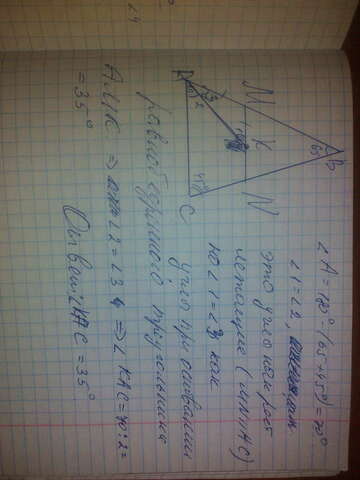 ∠A = 180° - (65+45°) = 70°
∠1 = ∠2,
это углы накрест
лежащие (MN∥AC)
то ∠1 = ∠3 как
углы при основании
равнобедренного треугольника
AMK ⇒ ∠2 = ∠3 ⇒ ∠KAC = 70:2=
= 35°
Ответ: ∠KAC = 35°
M
K
N
B
65
A
3
2
45°
C